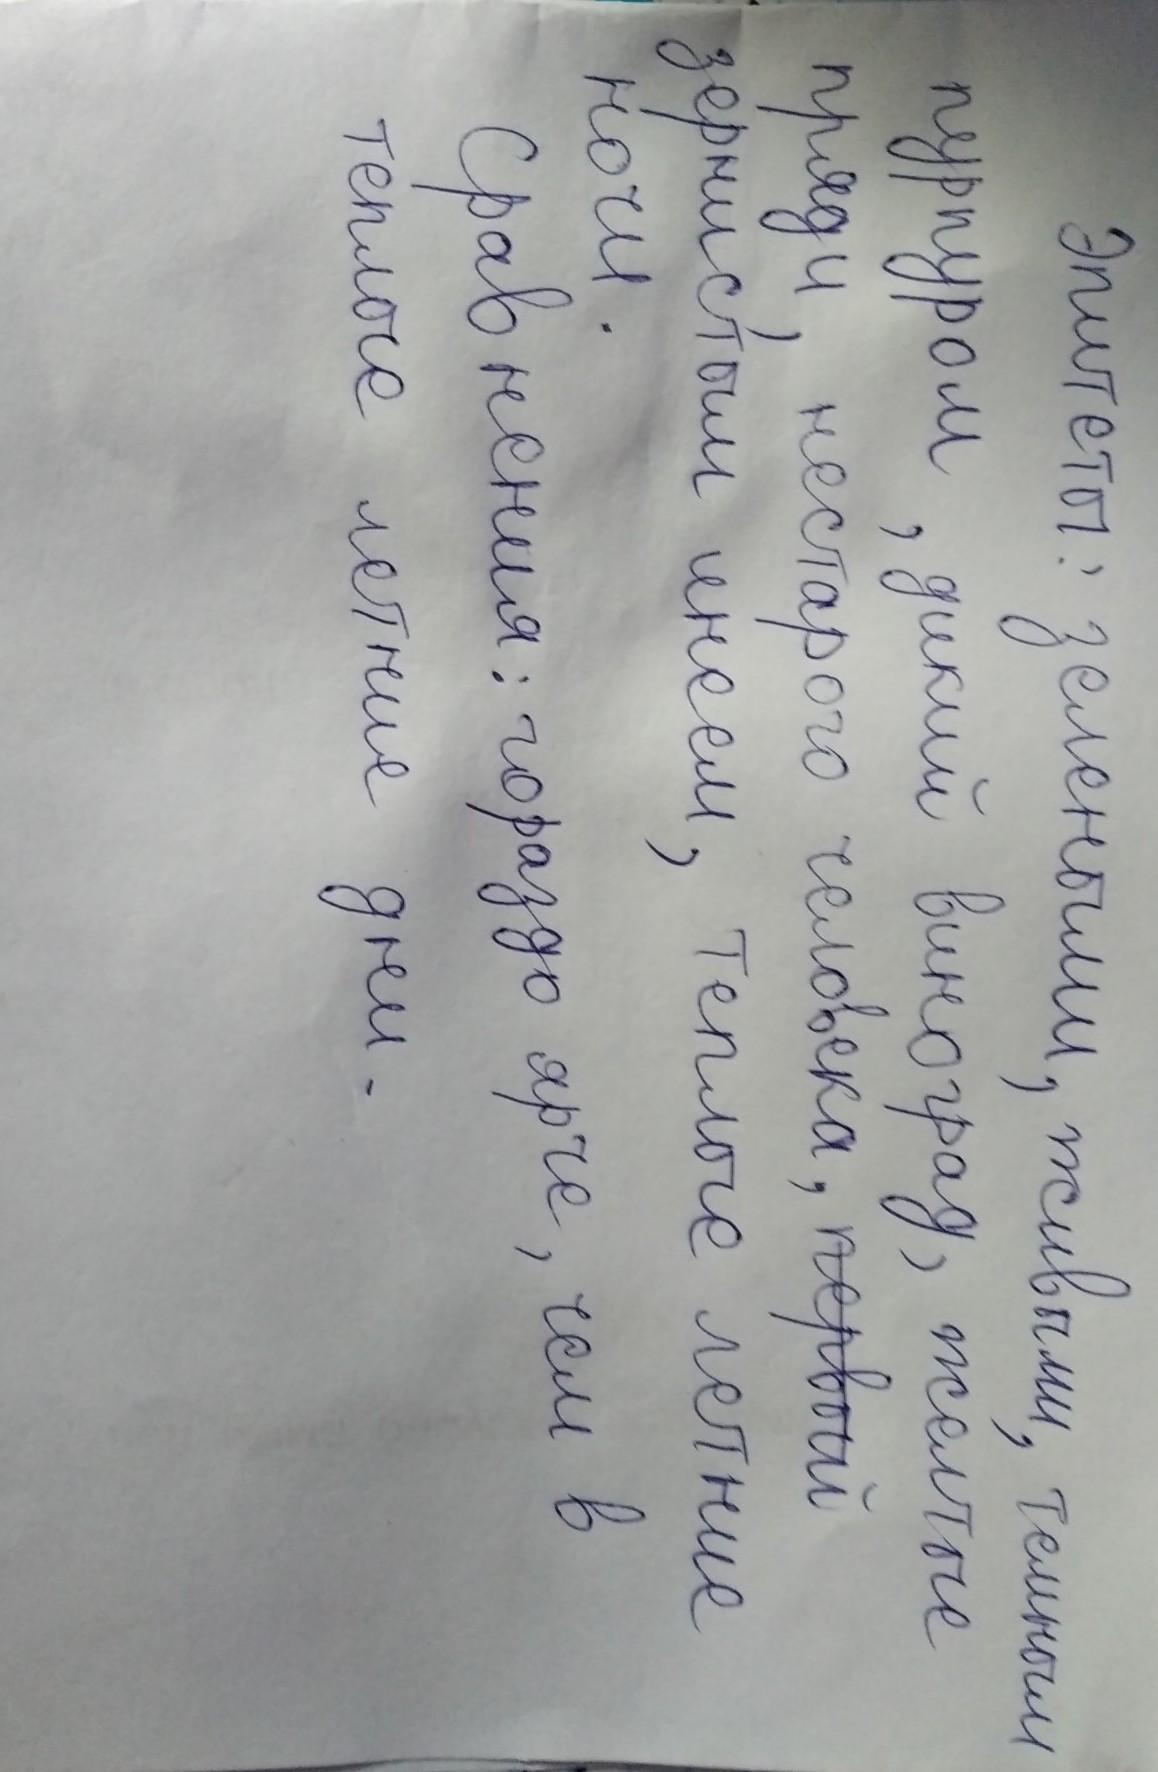 Эпитеты: зелеными, живыми, темным
пурпуром, дикий виноград, желтые
пряди, нестарого человека, первый
зернистым инеем, теплые летние
ночи.
Сравнения: гораздо ярче, чем в
теплые летние дни.